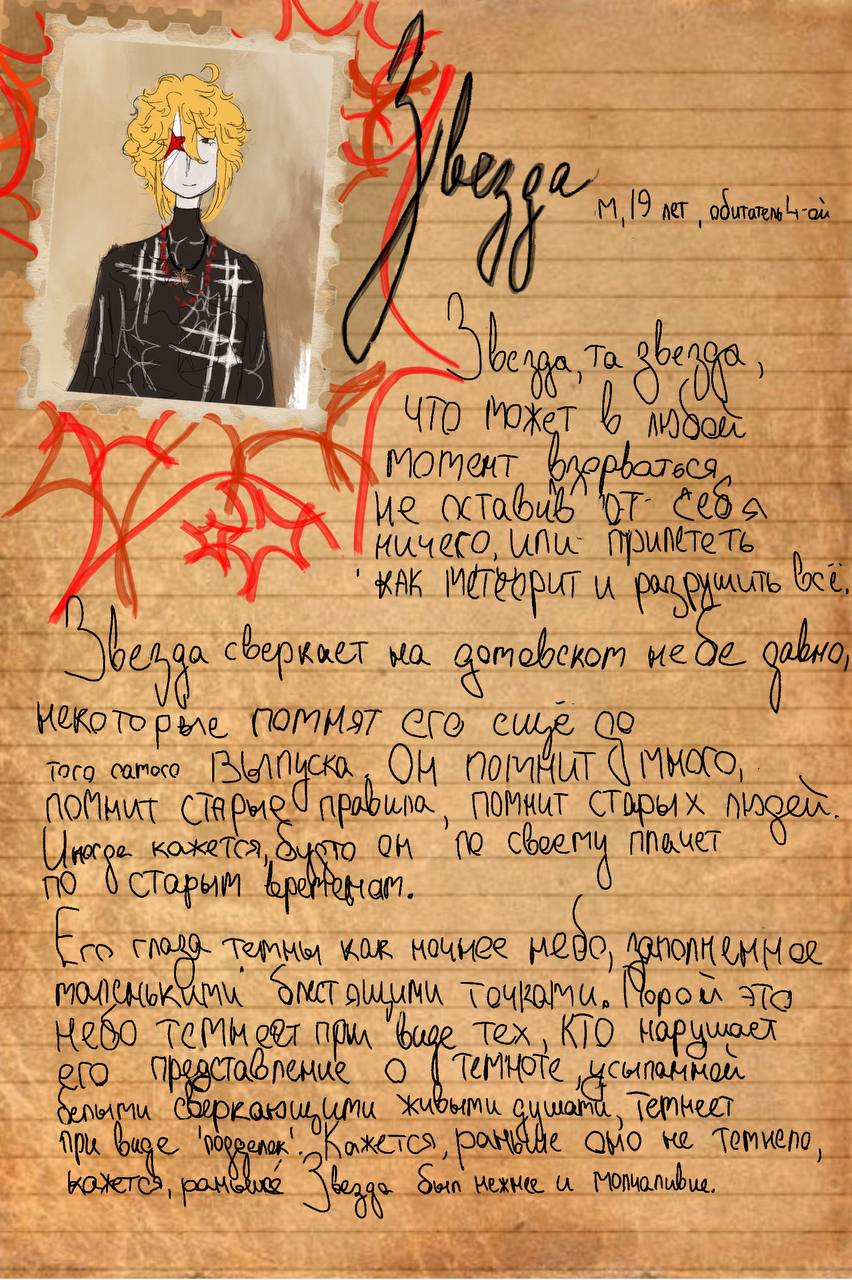 Звезда
м, 19 лет, обитатель 4-ой
Звезда, та звезда,
что может в любой
момент взорваться,
не оставив от себя
ничего, или прилететь
как метеорит и разрушить всё.
Звезда сверкает на домовском небе давно,
некоторые помнят его ещё до
того самого Выпуска. Он помнит много,
помнит старые правила, помнит старых людей.
Иногда кажется, будто он по своему плачет
по старым временам.
Его глаза темны как ночнее небо, заполненное
маленькими блестящими точками. Порой это
небо темнеет при виде тех, кто нарушает
его представление о темноте, усыпанной
белыми сверкающими живыми душами, темнеет
при виде 'подделок'. Кажется, раньше оно не темнело,
кажется, раньше Звезда был нежнее и молчаливие.